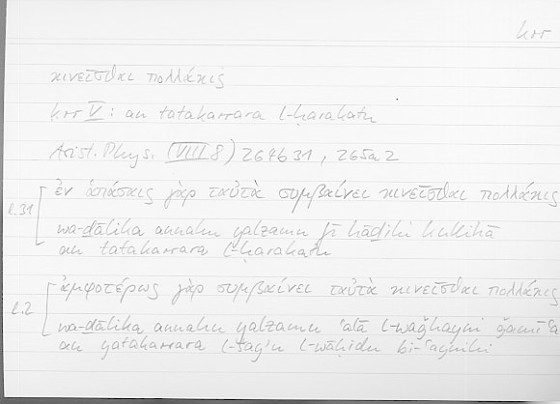 krr
κινεῖσθαι πολλάκις
krr V : an tatakarrara l-ḥarakatu
Arist. Phys. (VIII 8) 264b31, 265a2
l.31 ἐν ἁπάσαις γὰρ ταὐτὰ συμβαίνει κινεῖσθαι πολλάκις
wa-ḏālika annahu yalzamu fī hāḏihi kullihā
an tatakarrara l-ḥarakatu
l.2 ἀμφοτέρως γὰρ συμβαίνει ταὐτὰ κινεῖσθαι πολλάκις
wa-ḏālika annahu yalzamu ʿalā l-waǧhayni ǧamīʿa
an yatakarrara l-šayʾu l-wāḥidu bi-ʿaynihi